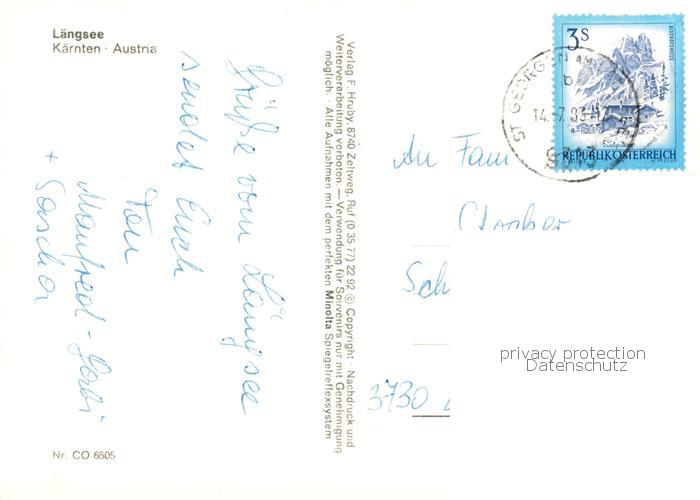 Längsee
Kärnten · Austria
Grüße vom Längsee
sendet Euch
Manfred -
+ Sascha
Nr. CO 6505
Verlag F. Hruby, 8740 Zeltweg. Ruf (0 35 77) 22 92 © Copyright · Nachdruck und
Weiterverarbeitung verboten. — Verwendung für Souvenirs nur mit Genehmigung
möglich. · Alle Aufnahmen mit dem perfekten Minolta Spiegelreflexsystem
3 S
REPUBLIK ÖSTERREICH
ST. GEORGEN AM
14.-7.83-17
An Fam
Sch
3730
privacy protection
Datenschutz